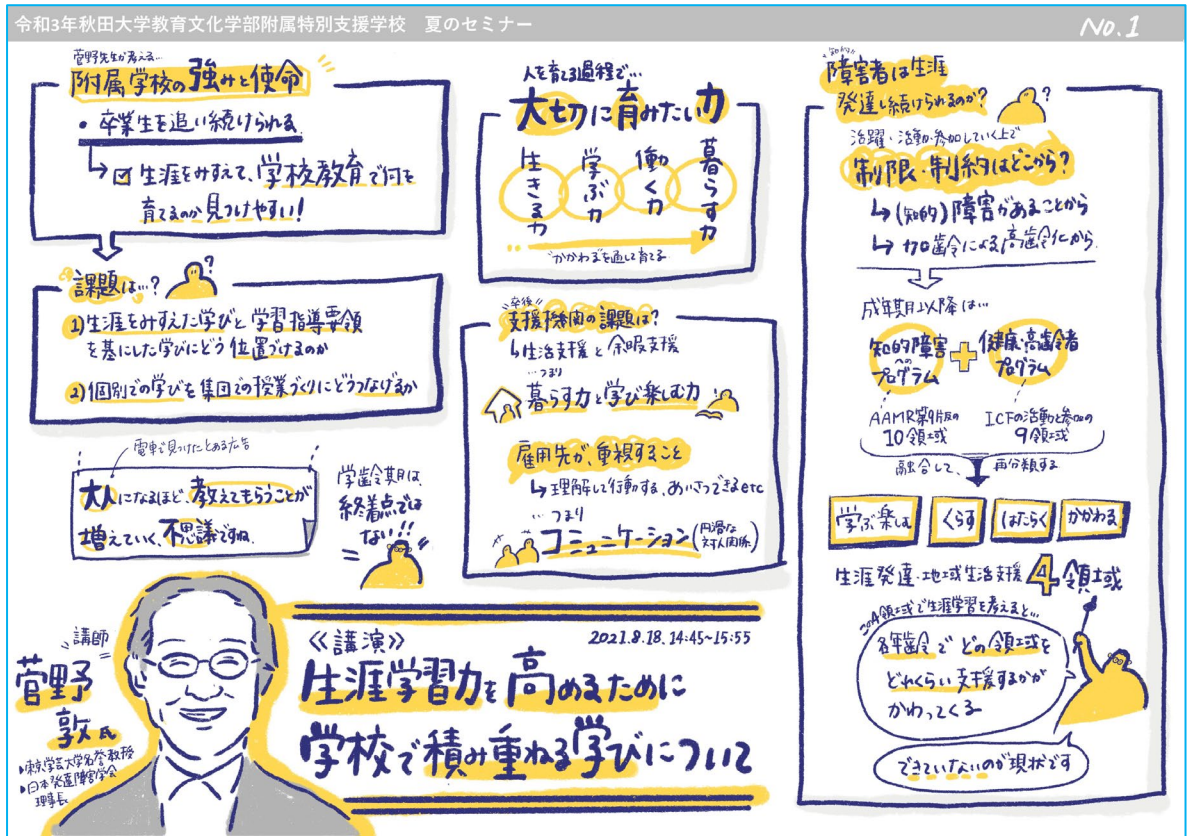 令和3年秋田大学教育文化学部附属特別支援学校 夏のセミナー
No.1
菅野先生が考える…
附属学校の強みと使命
・卒業生を追い続けられる
↳☑生涯をみすえて、学校教育で何を
育てるのか見つけやすい!
課題は…?
?
1)生涯をみすえた学びと学習指導要領
を基にした学びにどう位置づけるのか
2)個別での学びを集団での授業づくりにどうつなげるか
電車で見つけたとある広告
大人になるほど、教えてもらうことが
増えていく、不思議ですね。
学齢期は、
終着点では
ない!!
人を育てる過程で…
大切に育みたい力
生きる力
学ぶ力
働く力
暮らす力
"かかわる"を通して育てる
"卒後"
支援機関の課題は?
↳生活支援と余暇支援
…つまり
暮らす力と学び楽しむ力
雇用先が、重視すること
↳理解して行動する、あいさつできるetc
…つまり
コミュニケーション(円滑な
対人関係)
"知的"
障害者は生涯
発達し続けられるのか?
?
活躍・活動・参加していく上で
制限・制約はどこから?
↳(知的)障害があることから
↳加齢による高齢化から
成年期以降は…
知的障害
への
プログラム
+
健康・高齢者
プログラム
AAMR第9版の
10領域
ICFの活動と参加の
9領域
融合して、再分類する
学ぶ・楽しむ
くらす
はたらく
かかわる
生涯発達・地域生活支援 4領域
この4領域で生涯学習を考えると…
各年齢でどの領域を
どれくらい支援するかが
かわってくる
できていないのが現状です
"講師"
菅野
敦氏
▶東京学芸大学名誉教授
▶日本発達障害学会
理事長
《講演》
2021.8.18. 14:45~15:55
生涯学習力を高めるために
学校で積み重ねる学びについて